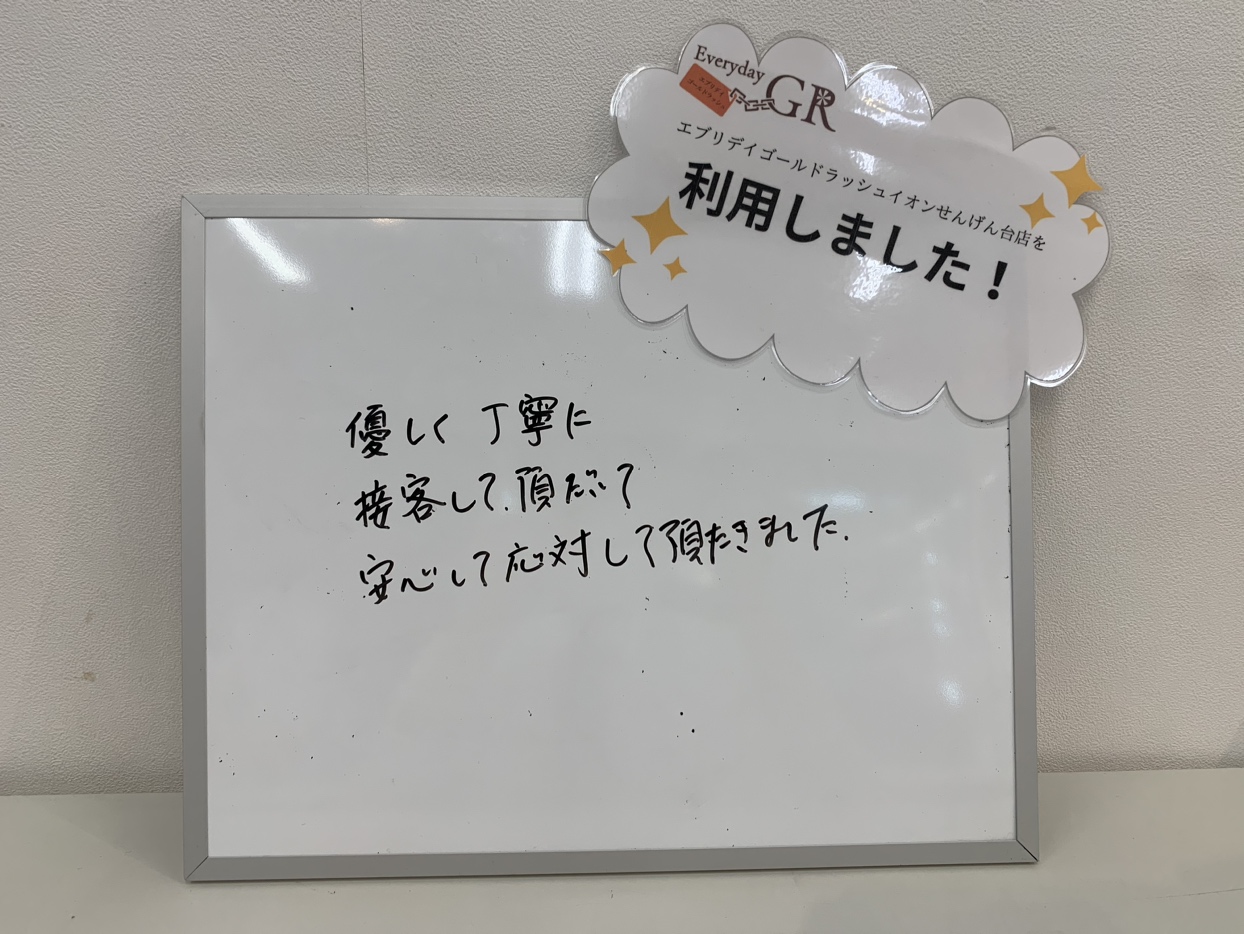 Everyday
GR
エブリデイ
ゴールドラッシュ
エブリデイゴールドラッシュイオンせんげん台店を
利用しました！
優しく丁寧に
接客して頂だいて
安心して応対して頂たきました.